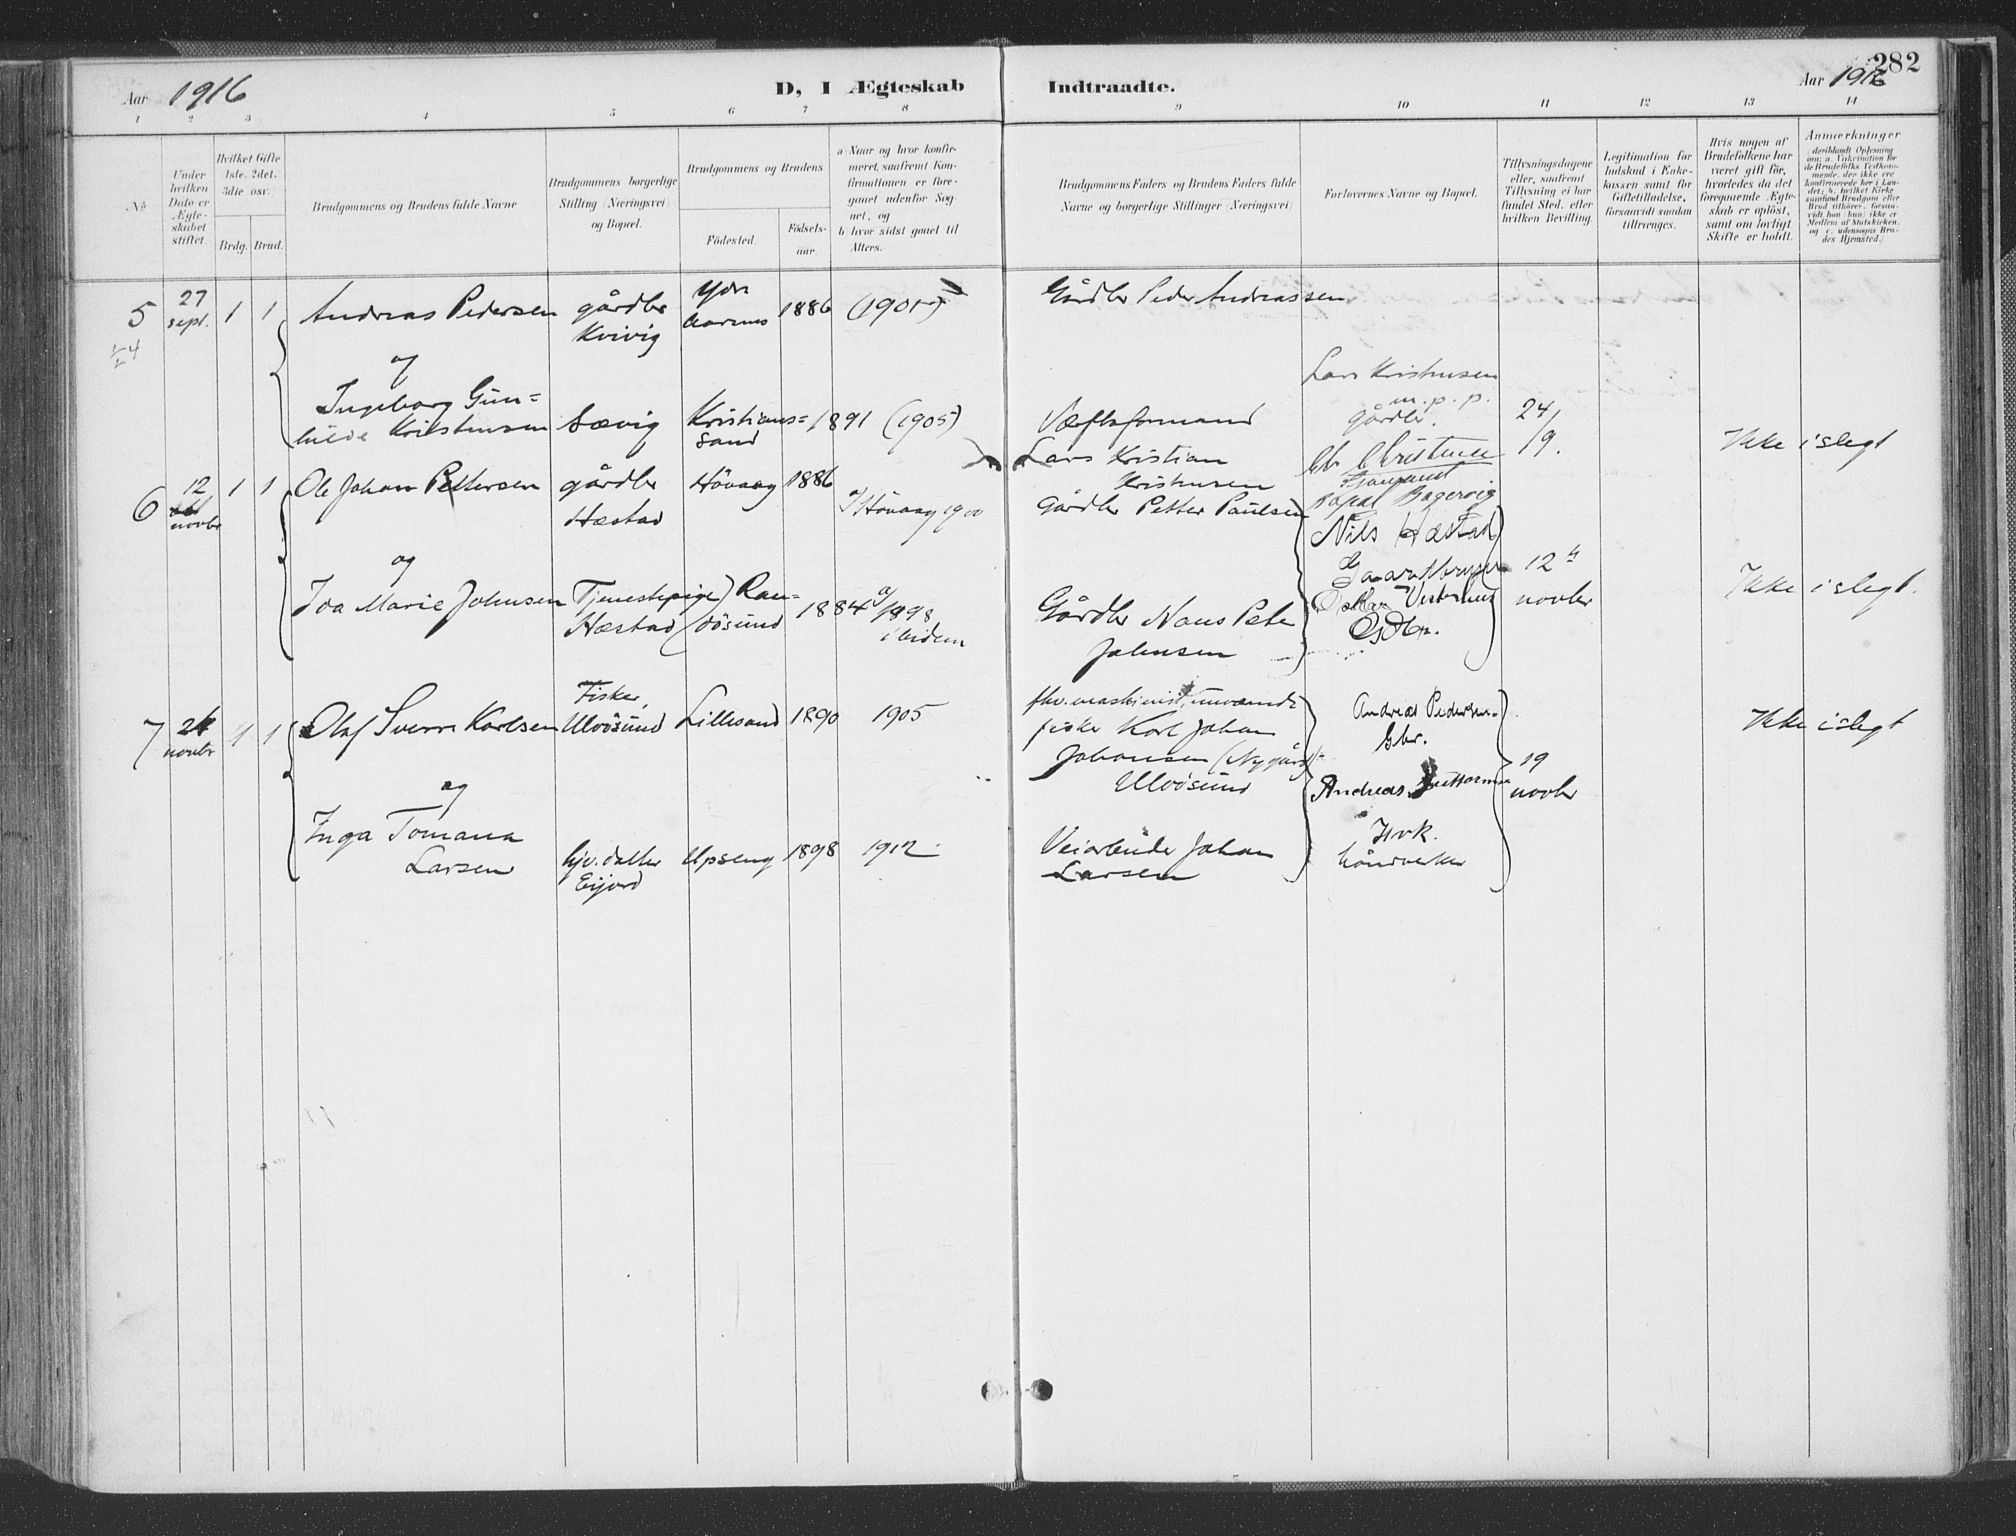 282
Aar 1916
D, I Ægteskab
Indtraadte.
Aar 1916
1 2 3 4 5 6 7 8 9 10 11 12 13 14
No
Under hvilken Dato er Ægteskabet stiftet.
Hvilket Gifte 1ste, 2det, 3die osv.
Brdg.
Brud.
Brudgommens og Brudens fulde Navne
Brudgommens borgerlige Stilling (Næringsvei) og Bopæl.
Brudgommens og Brudens
Fødested.
Fødsels-aar.
a) Naar og hvor konfirmeret, saafremt Konfirmationen er foregaaet udenfor Sognet, og
b hvor sidst gaaet til Alters.
Brudgommens Faders og Brudens Faders fulde Navne og borgerlige Stillinger (Næringsvei)
Forlovernes Navne og Bopæl.
Tillysningsdagene eller, saafremt Tillysning ei har fundet Sted, efter hvilken Bevilling.
Legitimation for Indskud i Enkekassen samt for Giftetilladelse, forsaavidt saadan tiltrænges.
Hvis nogen af Brudefolkene har været gift før, hvorledes da det foregaaende Ægteskab er opløst, samt om lovligt Skifte er holdt.
Anmerkninger
5
27 sept.
1 1
Andreas Pedersen
gårdbr
Kvivig
1886
(1905)
Gårdbr Peder Andreassen
og
Ingeborg Gun=
hilde Kristensen
Sævig
Kristians=
sand
1891
(1905)
Værftsformand
Lars Kristian
Kristensen
Lars Kristensen
m.p.p.
gårdbr.
24/9.
Ikke i slegt
6
12
novbr
1 1
Ole Johan Pettersen
gårdbr
Hæstad
Høvaag
1886
Høvaag 1900
Gårdbr Petter Paulsen
Nils Hæstad
og
Ida Marie Johnsen
Tjenestepige
Hæstad
Ran=
dösund
1884
1898
ibidem
Gårdbr Hans Peter
Johnsen
Oskar Vesterhus
Gdbr.
12
novbr
Ikke i slegt.
7
26
novbr
1 1
Olaf Sverre Karlsen
Fisker,
Ulvösund
Lillesand
1890
1905
fhv. maskinist, nuværende
fisker Karl Johan
Johansen (Nygård)
Ulvösund
Andreas Pedersen
Gbr.
19
novbr
Ikke i slegt
og
Inga Tomana
Larsen
hjv. datter
Eijord
Upseng
1898
1912
Veiarbeider Johan
Larsen
Andreas
håndverker